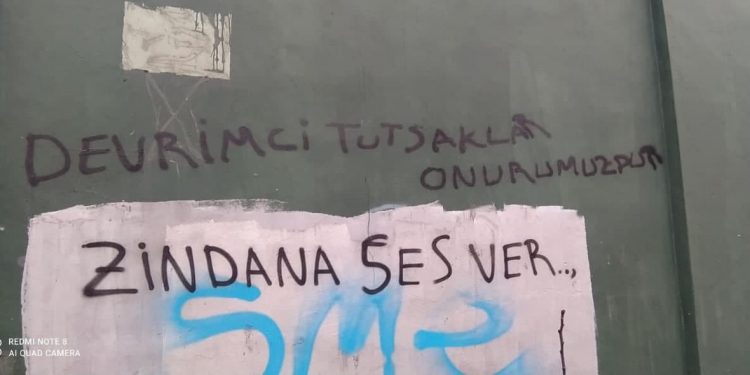 DEVRİMCİ TUTSAKLAR
ONURUMUZDUR
ZİNDANA SES VER...
SMF
REDMI NOTE 8
AI QUAD CAMERA